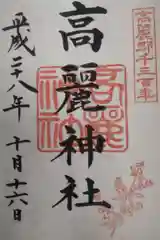 高麗郡千三百年
高麗神社
平成二十八年
十月十六日